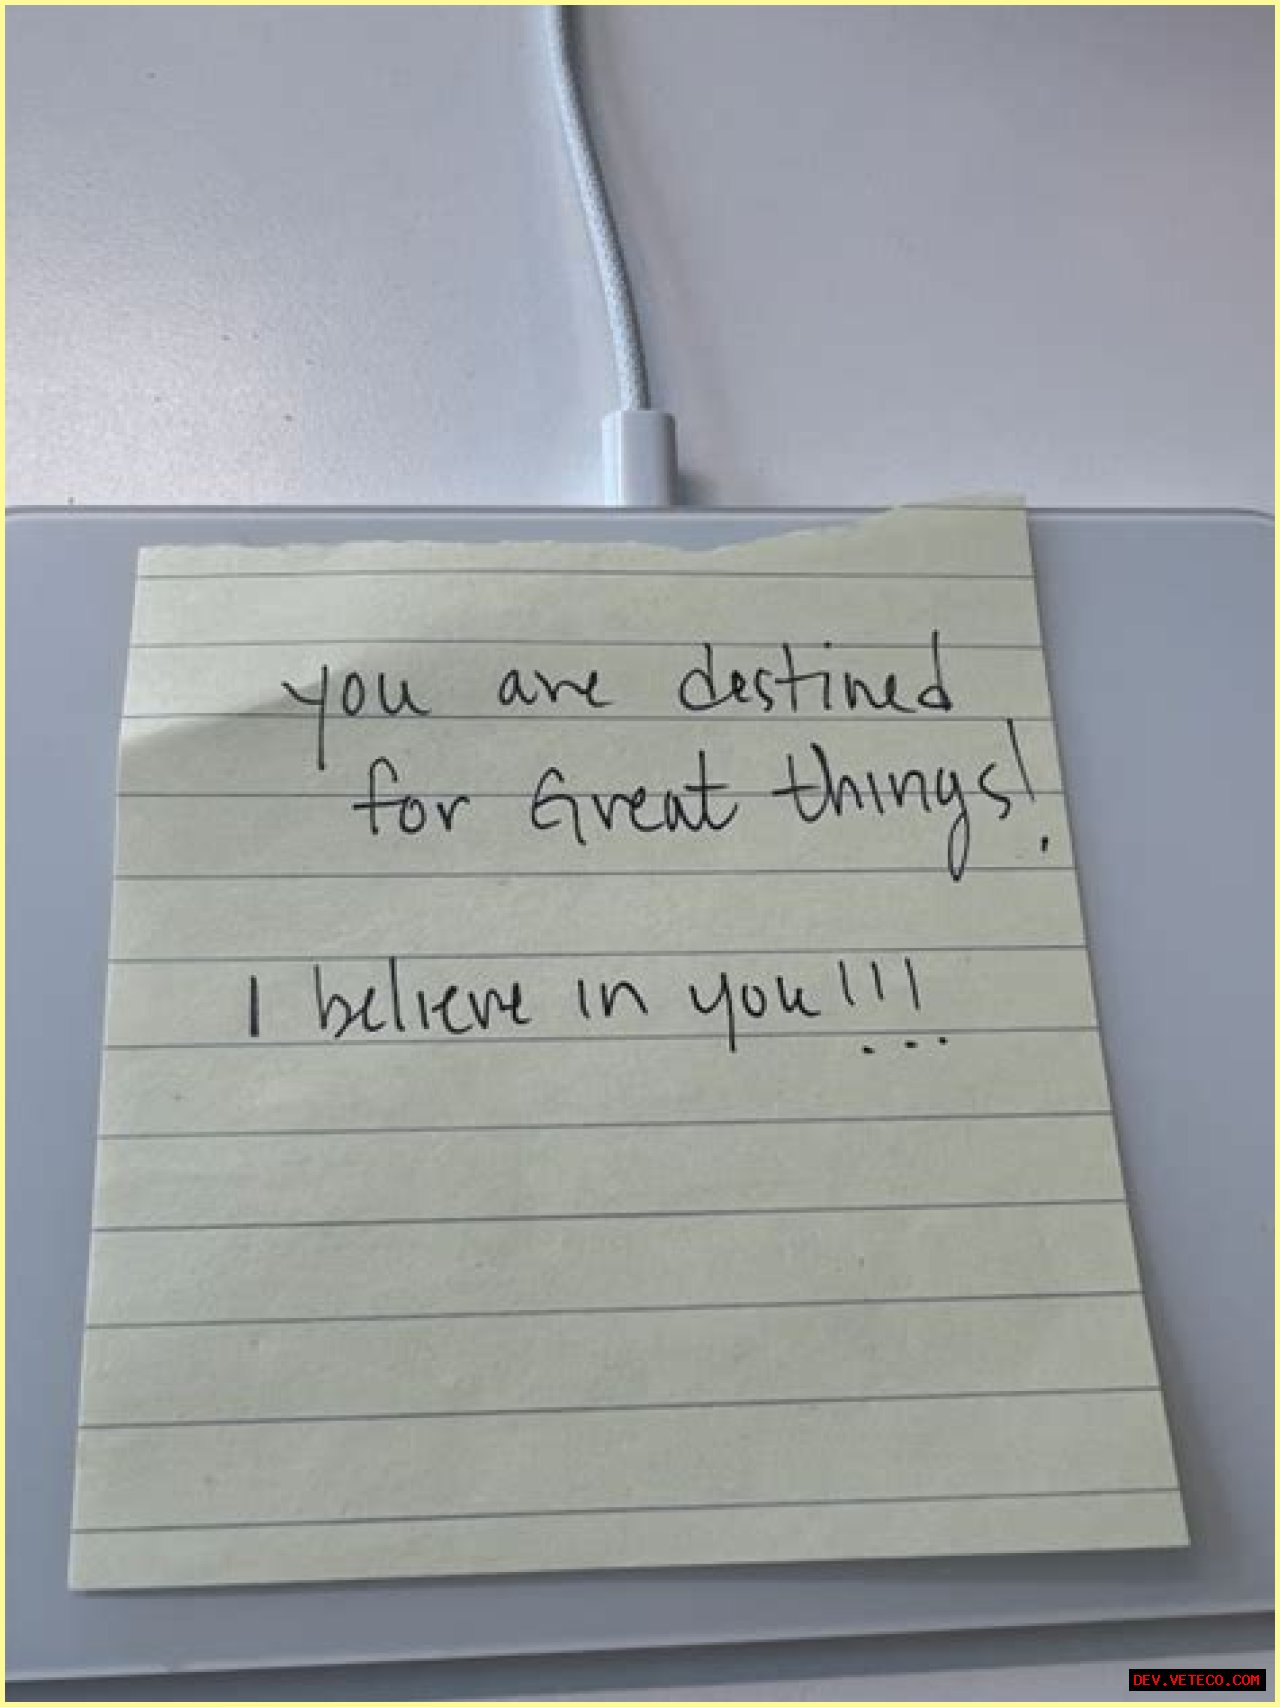 you are destined
for Great things!
I believe in you!!!
DEV.VETECO.COM